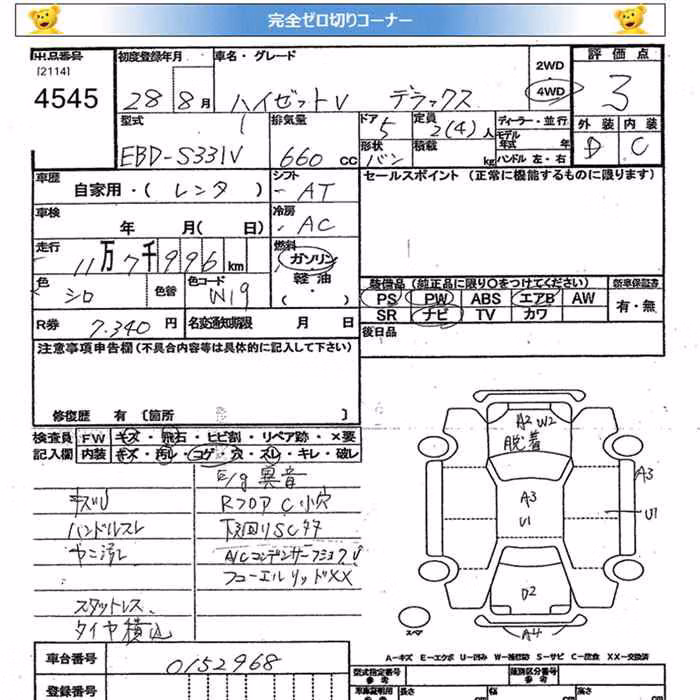 完全ゼロ切りコーナー
出品番号 初度登録年月 車名・グレード 2WD 評価点
[2114]
4545 28 8月 ハイゼットV デラックス 4WD 3
型式 排気量 ドア 定員 ディーラー・並行 外装 内装
EBD-S331V 660 cc 5 2(4)人 モデル年式 年 D C
形状 バン 積載 kg ハンドル 左・右
車歴 自家用・(レンタ) シフト AT セールスポイント (正常に機能するものに限ります)
車検 年 月(日) 冷房 AC
走行 11万7千996km 燃料 ガソリン 軽油 ・( )
色 シロ 色替 色コード W19
装備品(純正品に限り○をつけてください) 新車保証書
PS PW ABS エアB AW 有・無
SR ナビ TV カワ
R券 7.340円 名変通知期限 月 日 後日品
注意事項申告欄(不具合内容等は具体的に記入して下さい)
修復歴 有 [箇所 ]
検査員 FW キズ・飛石・ヒビ割・リペア跡・×要
記入欄 内装 キズ・汚レ・コゲ・穴・スレ・キレ・破レ
E/g異音
キズU RフロアC小穴
ハンドルスレ 下回りSCタタ
ヤニ汚レ A/Cコンデンサーフィン
フューエルリッドXX
スタットレス、
タイヤ積込
A2 W2
脱着
A3
U1
A3
U1
D2
A4
スペア
A-キズ E-エクボ U-凹み W-補修跡 S-サビ C-腐食 XX-交換済
車台番号 0152968 型式指定番号 参考 類別区分番号 参考
登録番号 車輌証明用 参考 長さ cm 幅 cm 高さ cm